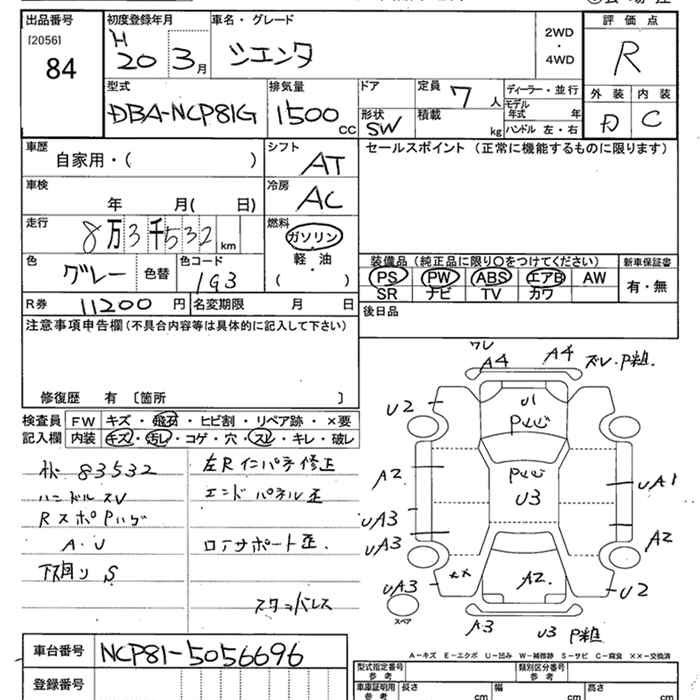 出品番号
[2056]
84
初度登録年月
H
20 3月
車名・グレード
シエンタ
2WD
・
4WD
評価点
R
外装 内装
D C
型式
DBA-NCP81G
排気量
1500
cc
ドア
形状
SW
定員
7人
積載
kg
ディーラー・並行
モデル
年式 年
ハンドル 左・右
車歴
自家用・( )
シフト
AT
車検
年 月( 日)
冷房
AC
走行
8万3千532
km
燃料
ガソリン
軽・油
( )
色
グレー
色替
色コード
1G3
R券 11200円
名変期限 月 日
セールスポイント (正常に機能するものに限ります)
装備品 (純正品に限り〇をつけてください)
PS PW ABS エアB AW
SR ナビ TV カワ
新車保証書
有・無
後日品
注意事項申告欄(不具合内容等は具体的に記入して下さい)
修復歴 有 〔箇所 〕
検査員
記入欄
FW キズ・飛石・ヒビ割・リペア跡・×要
内装 キズ・汚レ・コゲ・穴・スレ・キレ・破レ
83532
ハンドルスレ
A・U
下廻り S
左Rインパネ修正
エンドパネル歪
ロアサポート歪
スタッドレス
ワレ
A4
A4
U2
U1
A2
U3
UA1
UA3
UA3
A2
UA3
××
A2
U2
スペア
A3
U3
A−キズ E−エクボ U−凹み W−補修跡 S−サビ C−腐食 ××−交換済
車台番号
NCP81-5056696
登録番号
型式指定番号
参考
類別区分番号
参考
車庫証明用
参考
長さ
cm
幅
cm
高さ
cm